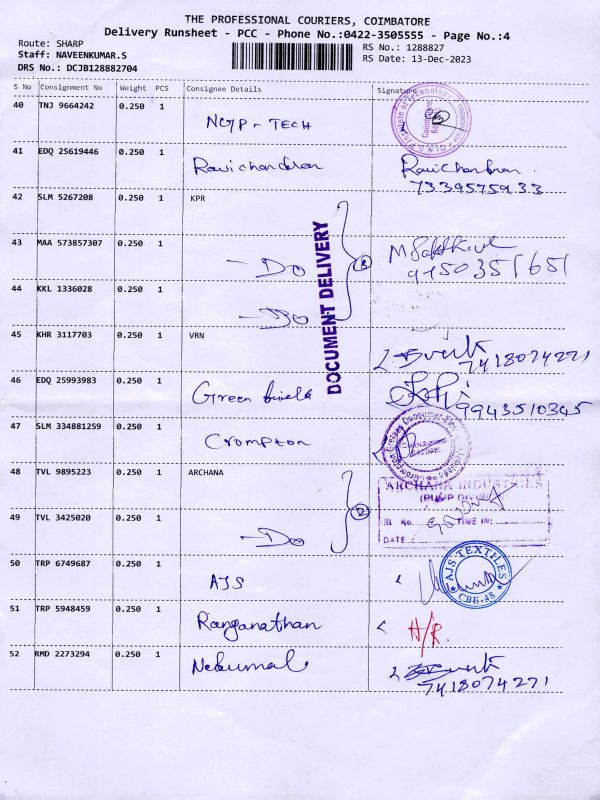 THE PROFESSIONAL COURIERS, COIMBATORE
Delivery Runsheet - PCC - Phone No.:0422-3505555 - Page No.:4
Route: SHARP
Staff: NAVEENKUMAR.S
DRS No.: DCJB128882704
RS No.: 1288827
RS Date: 13-Dec-2023
S No Consignment No Weight PCS Consignee Details Signature
40 TNJ 9664242 0.250 1
41 EDQ 25619446 0.250 1 Ravichandran Ravichandran
7339575933
42 SLM 5267208 0.250 1 KPR
43 MAA 573857307 0.250 1 - Do
9150351651
44 KKL 1336028 0.250 1 - Do
DOCUMENT DELIVERY
45 KHR 3117703 0.250 1 VRN
7418074271
46 EDQ 25993983 0.250 1 Green
9943510345
47 SLM 334881259 0.250 1 Crompton
48 TVL 9895223 0.250 1 ARCHANA
ARCHANA INDUSTRIES
(PUMP DIVISI
SL No. TIME IN:
DATE
49 TVL 3425020 0.250 1 - Do
50 TRP 6749687 0.250 1 AJS
AJS TEXTILES
CBE-48
51 TRP 5948459 0.250 1 Ranganathan H/R.
52 RMD 2273294 0.250 1
7418074271